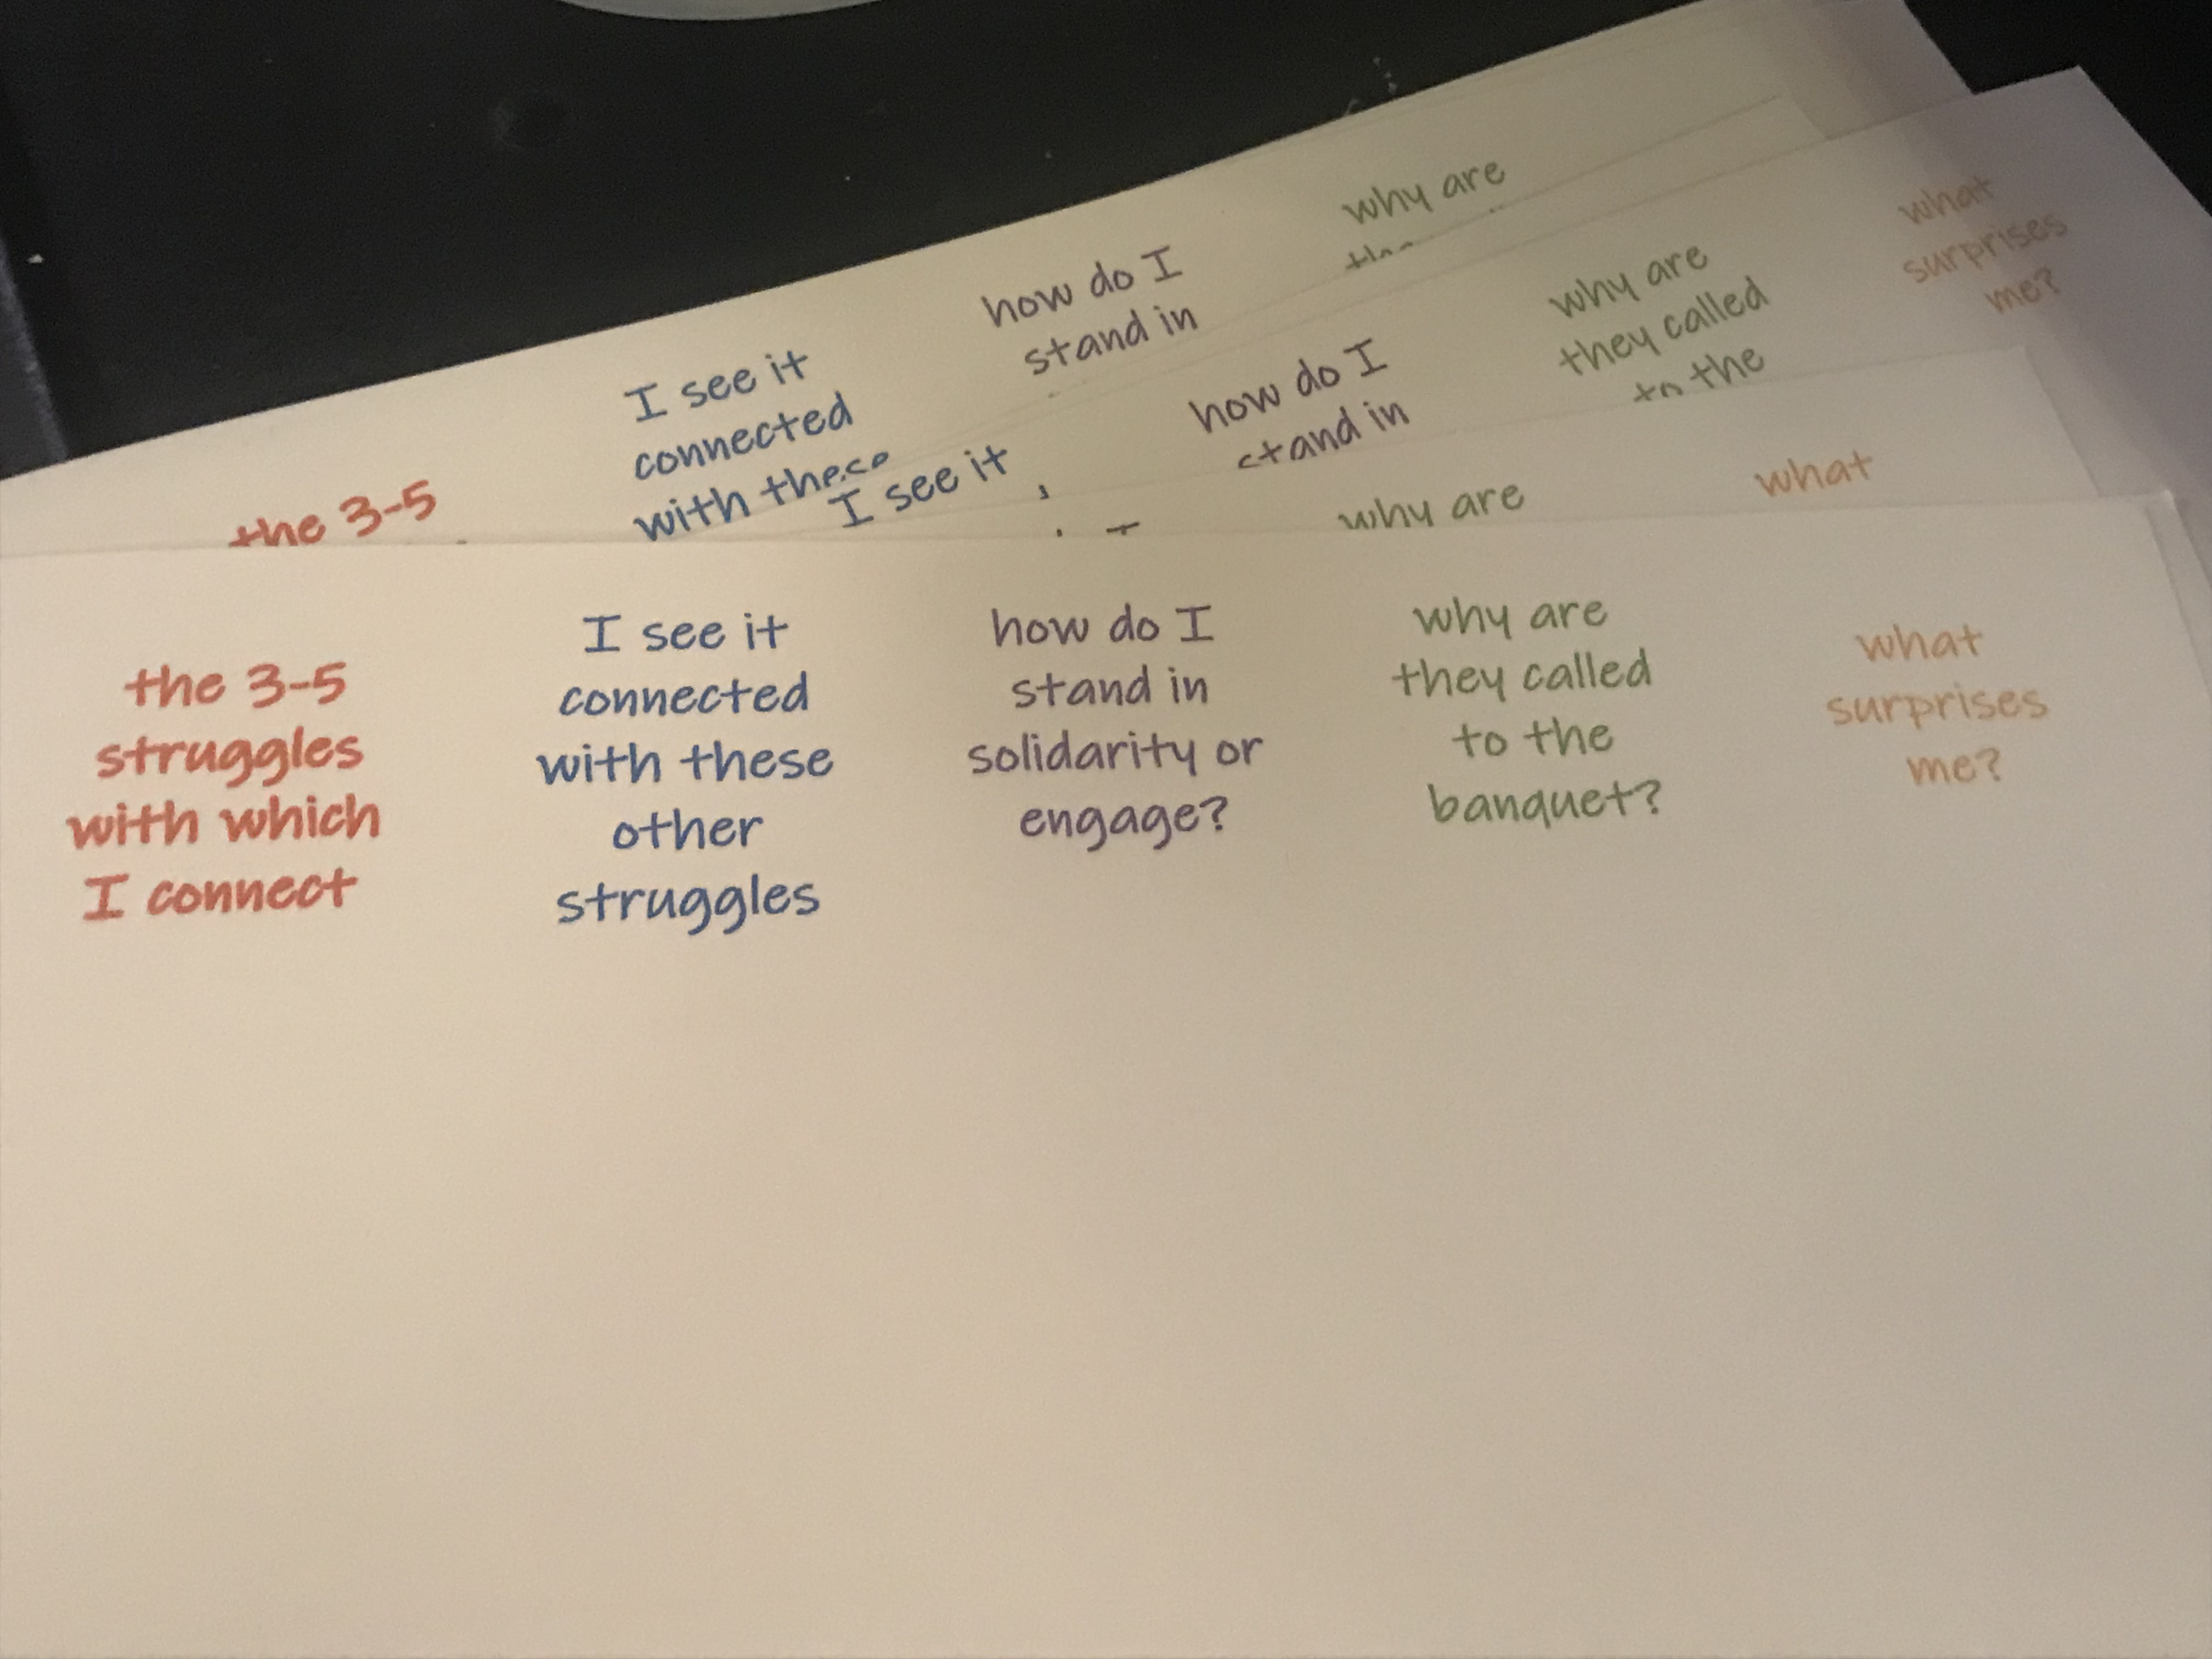 why are
what
surprises
me?
how do I
stand in
why are
they called
to the
I see it
connected
with these
how do I
stand in
the 3-5
I see it
why are
what
the 3-5
struggles
with which
I connect
I see it
connected
with these
other
struggles
how do I
stand in
solidarity or
engage?
why are
they called
to the
banquet?
what
surprises
me?